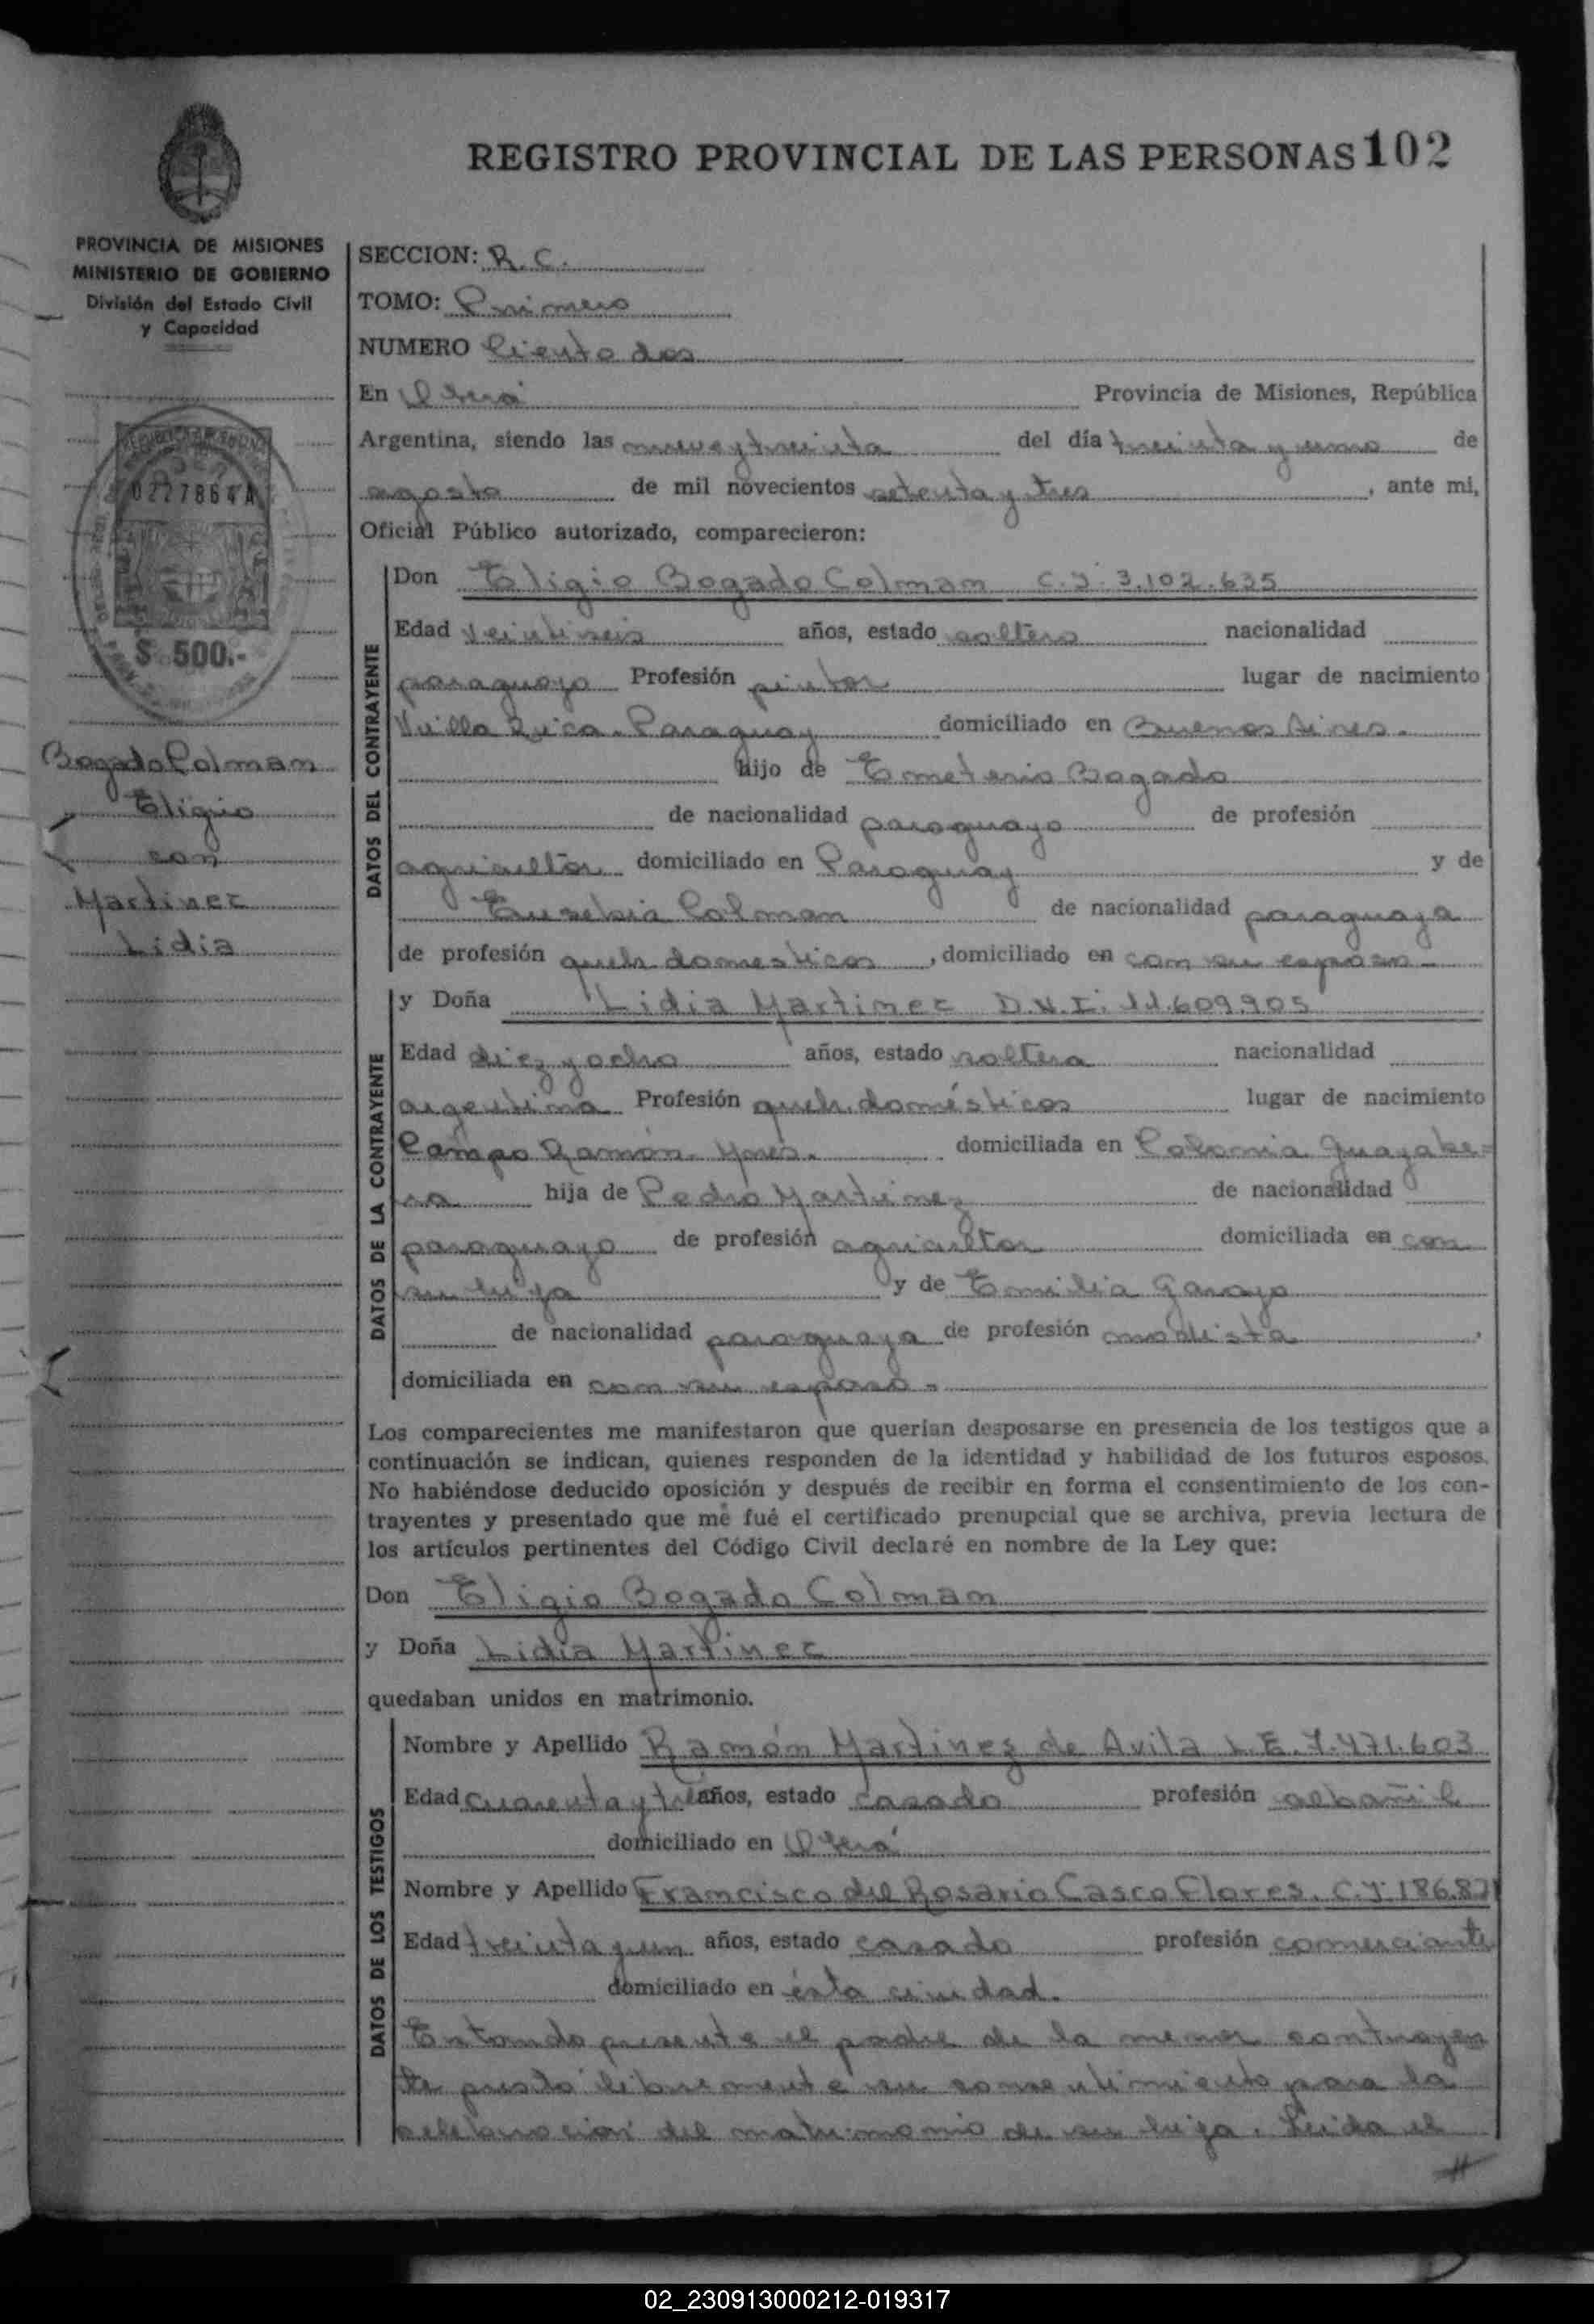 REGISTRO PROVINCIAL DE LAS PERSONAS 102
PROVINCIA DE MISIONES
MINISTERIO DE GOBIERNO
División del Estado Civil
y Capacidad
0227864 A
$ 500.-
Bogado Colman
Eligio
con
Martinez
Lidia
SECCION: R. C.
TOMO: Primero
NUMERO Ciento dos
En Oberá Provincia de Misiones, República
Argentina, siendo las nueve y treinta del día treinta y uno de
agosto de mil novecientos setenta y tres, ante mi,
Oficial Público autorizado, comparecieron:
DATOS DEL CONTRAYENTE
Don Eligio Bogado Colman C.I. 3.102.635
Edad veintiseis años, estado soltero nacionalidad
paraguayo Profesión pintor lugar de nacimiento
Villa Rica. Paraguay domiciliado en Buenos Aires.
hijo de Emeterio Bogado
de nacionalidad paraguayo de profesión
agricultor domiciliado en Paraguay y de
Eusebia Colman de nacionalidad paraguaya
de profesión queh. domesticos, domiciliado en con su esposo.
DATOS DE LA CONTRAYENTE
y Doña Lidia Martinez D.N.I. 11.609.905
Edad diez y ocho años, estado soltera nacionalidad
argentina Profesión queh. domésticos lugar de nacimiento
Campo Ramón. Mnes. domiciliada en Colonia Guayabe=
ra hija de Pedro Martinez de nacionalidad
paraguayo de profesión agricultor domiciliada en con
su hija y de Emilia Garayo
de nacionalidad paraguaya de profesión modista,
domiciliada en con su esposo.
Los comparecientes me manifestaron que querían desposarse en presencia de los testigos que a
continuación se indican, quienes responden de la identidad y habilidad de los futuros esposos.
No habiéndose deducido oposición y después de recibir en forma el consentimiento de los con-
trayentes y presentado que me fué el certificado prenupcial que se archiva, previa lectura de
los artículos pertinentes del Código Civil declaré en nombre de la Ley que:
Don Eligio Bogado Colman
y Doña Lidia Martinez
quedaban unidos en matrimonio.
DATOS DE LOS TESTIGOS
Nombre y Apellido Ramón Martinez de Avila L.E. 7.471.603
Edad cuarenta y tres años, estado casado profesión albañil
domiciliado en Oberá
Nombre y Apellido Francisco del Rosario Casco Flores. C.I. 186.871
Edad treinta y un años, estado casado profesión comerciante
domiciliado en ésta ciudad.
Estando presente el padre de la menor contrayen
te prestó libremente su consentimiento para la
celebración del matrimonio de su hija. Leida el
//
02_230913000212-019317